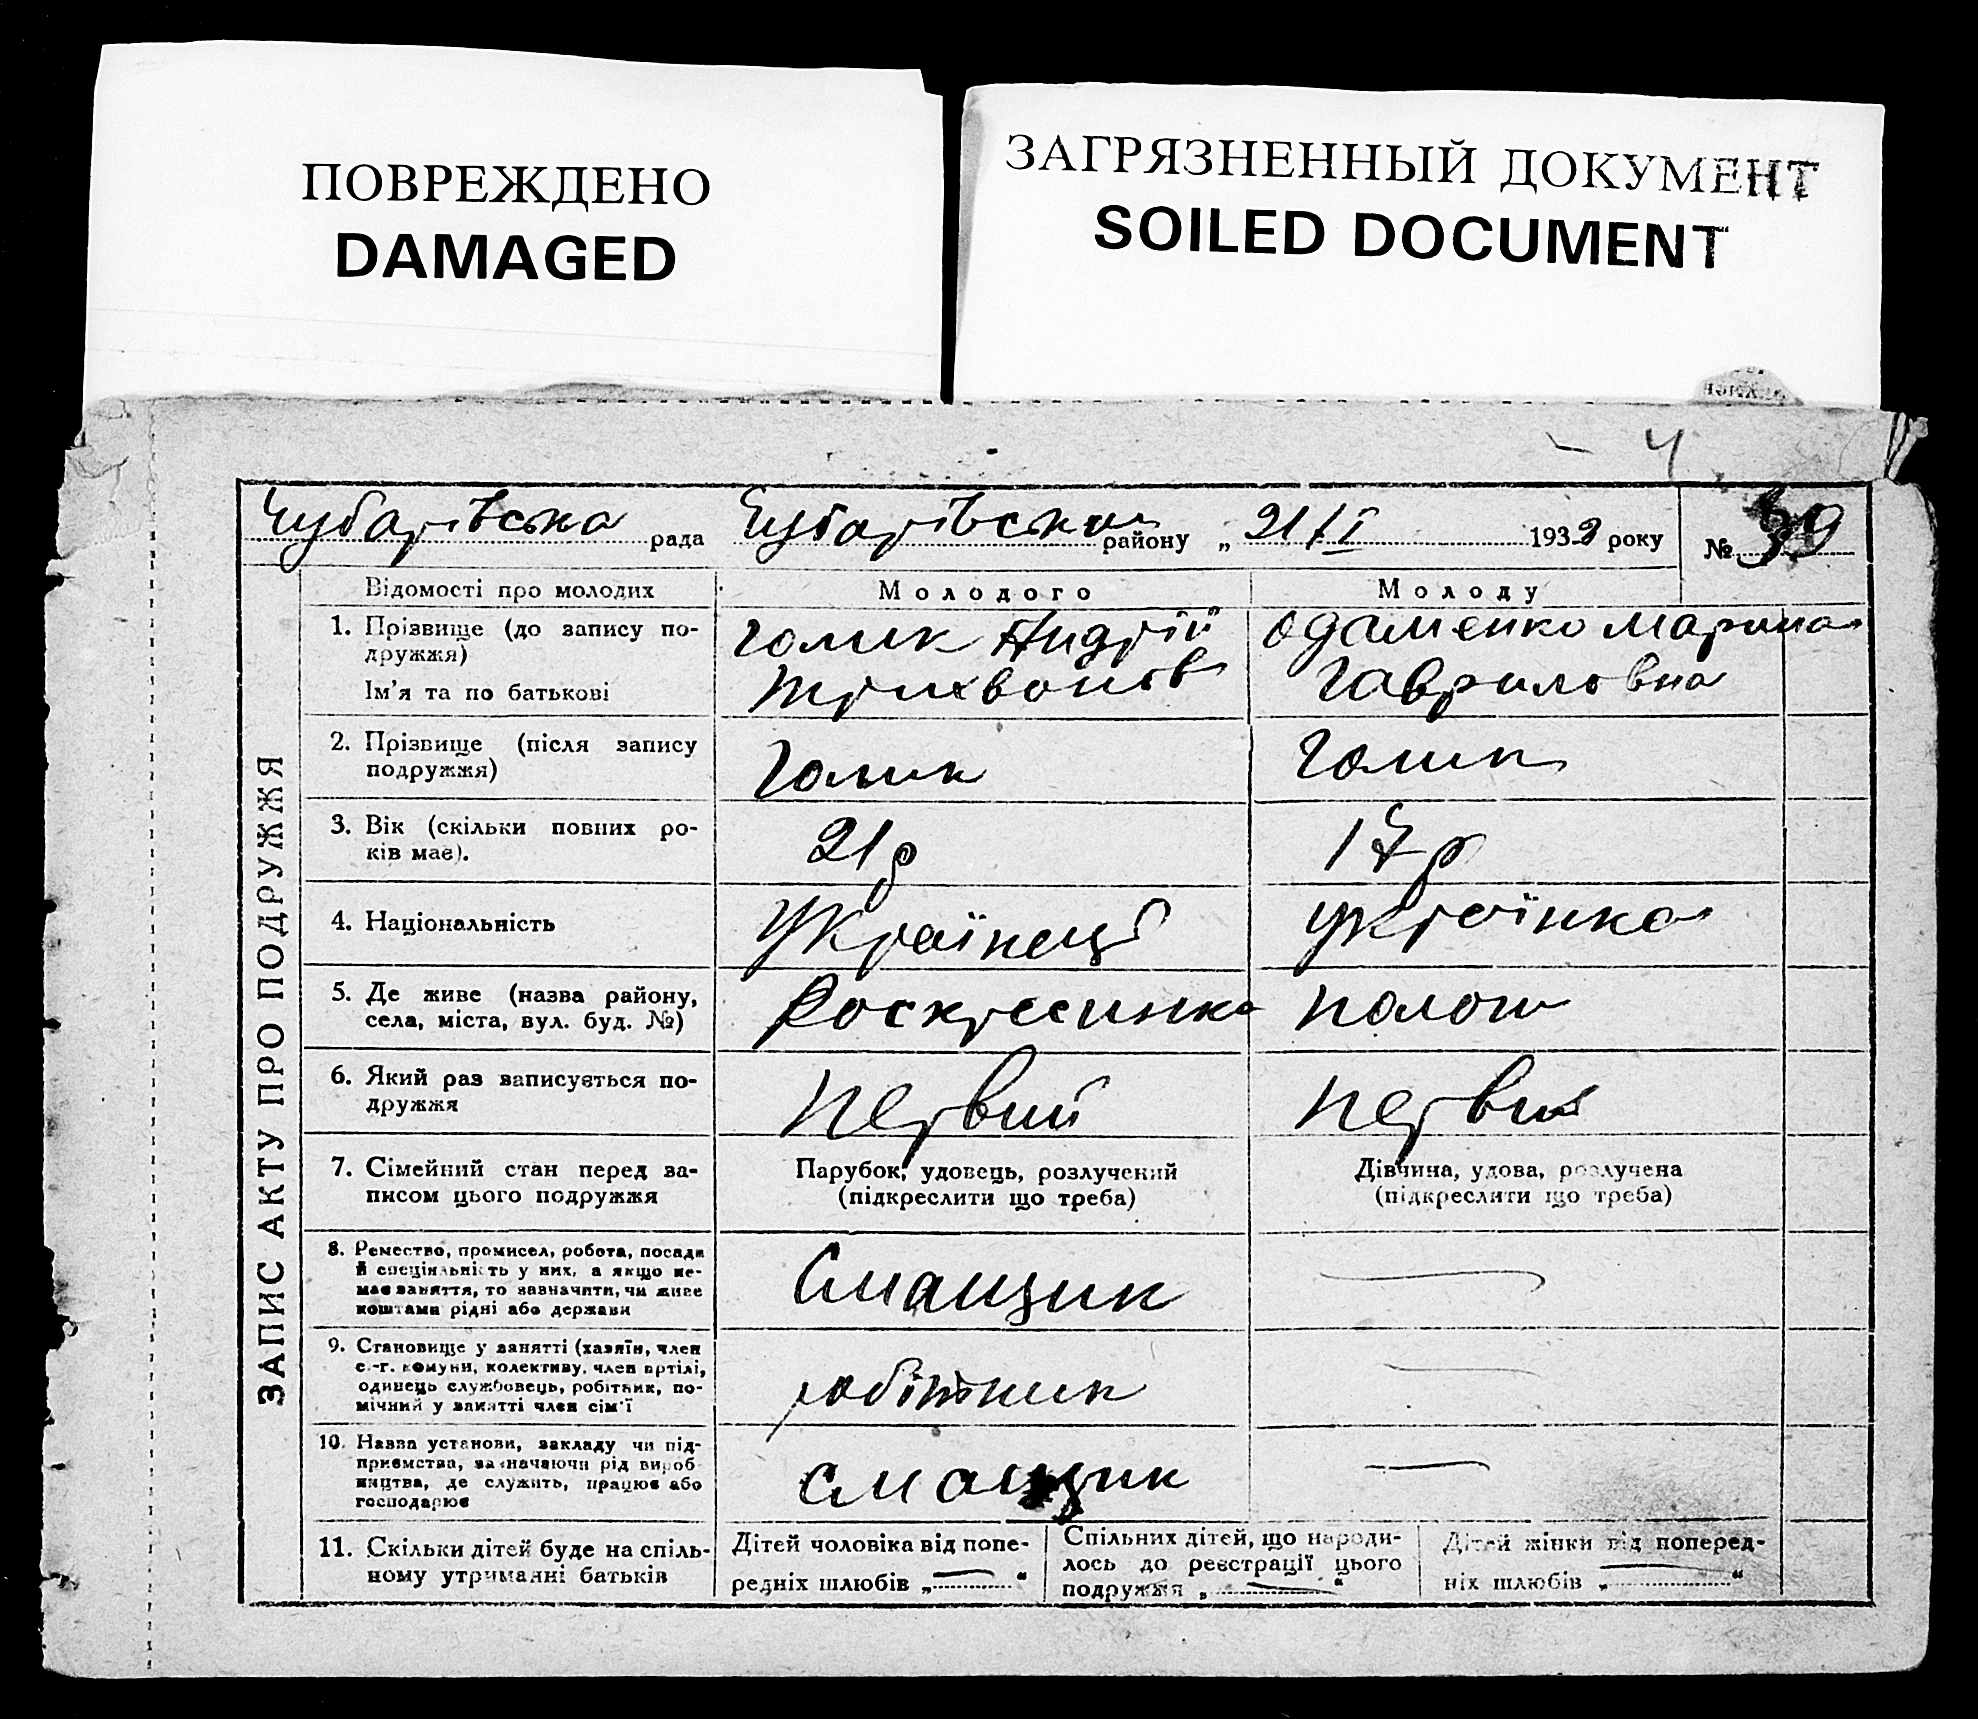 ПОВРЕЖДЕНО
DAMAGED
ЗАГРЯЗНЕННЫЙ ДОКУМЕНТ
SOILED DOCUMENT
4
Чубарівська рада Чубарівськ району „ 21/I 1933 року № 39
ЗАПИС АКТУ ПРО ПОДРУЖЖЯ
Відомості про молодих
Молодого
Молоду
1. Прізвище (до запису по-
дружжя)
Ім'я та по батькові
Голик Андрій
Трихвонов
Одаменко Марина
Гавриловна
2. Прізвище (після запису
подружжя)
Голик
Голик
3. Вік (скільки повних ро-
ків має).
21 р
17 р
4. Національність
Українець
Українка
5. Де живе (назва району,
села, міста, вул. буд. №)
Воскресинка
Пологи
6. Який раз записується по-
дружжя
Первий
Первий
7. Сімейний стан перед за-
писом цього подружжя
Парубок, удовець, розлучений
(підкреслити що треба)
Дівчина, удова, розлучена
(підкреслити що треба)
8. Ремество, промисел, робота, посада
й спеціяльність у них, а якщо не-
має заняття, то зазначити, чи живе
коштами рідні або держави
Смащик
9. Становище у занятті (хазяїн, член
с.-г. комуни, колективу, член артілі,
одинець службовець, робітник, по-
мічний у занятті член сім'ї
робітник
10. Назва установи, закладу чи під-
приємства, зазначаючи рід вироб-
ництва, де служить, працює або
господарює
смащик
11. Скільки дітей буде на спіль-
ному утриманні батьків
Дітей чоловіка від попе-
редніх шлюбів „ — “
Спільних дітей, що народи-
лось до реєстрації цього
подружжя „ — “
Дітей жінки від поперед-
ніх шлюбів „ — “